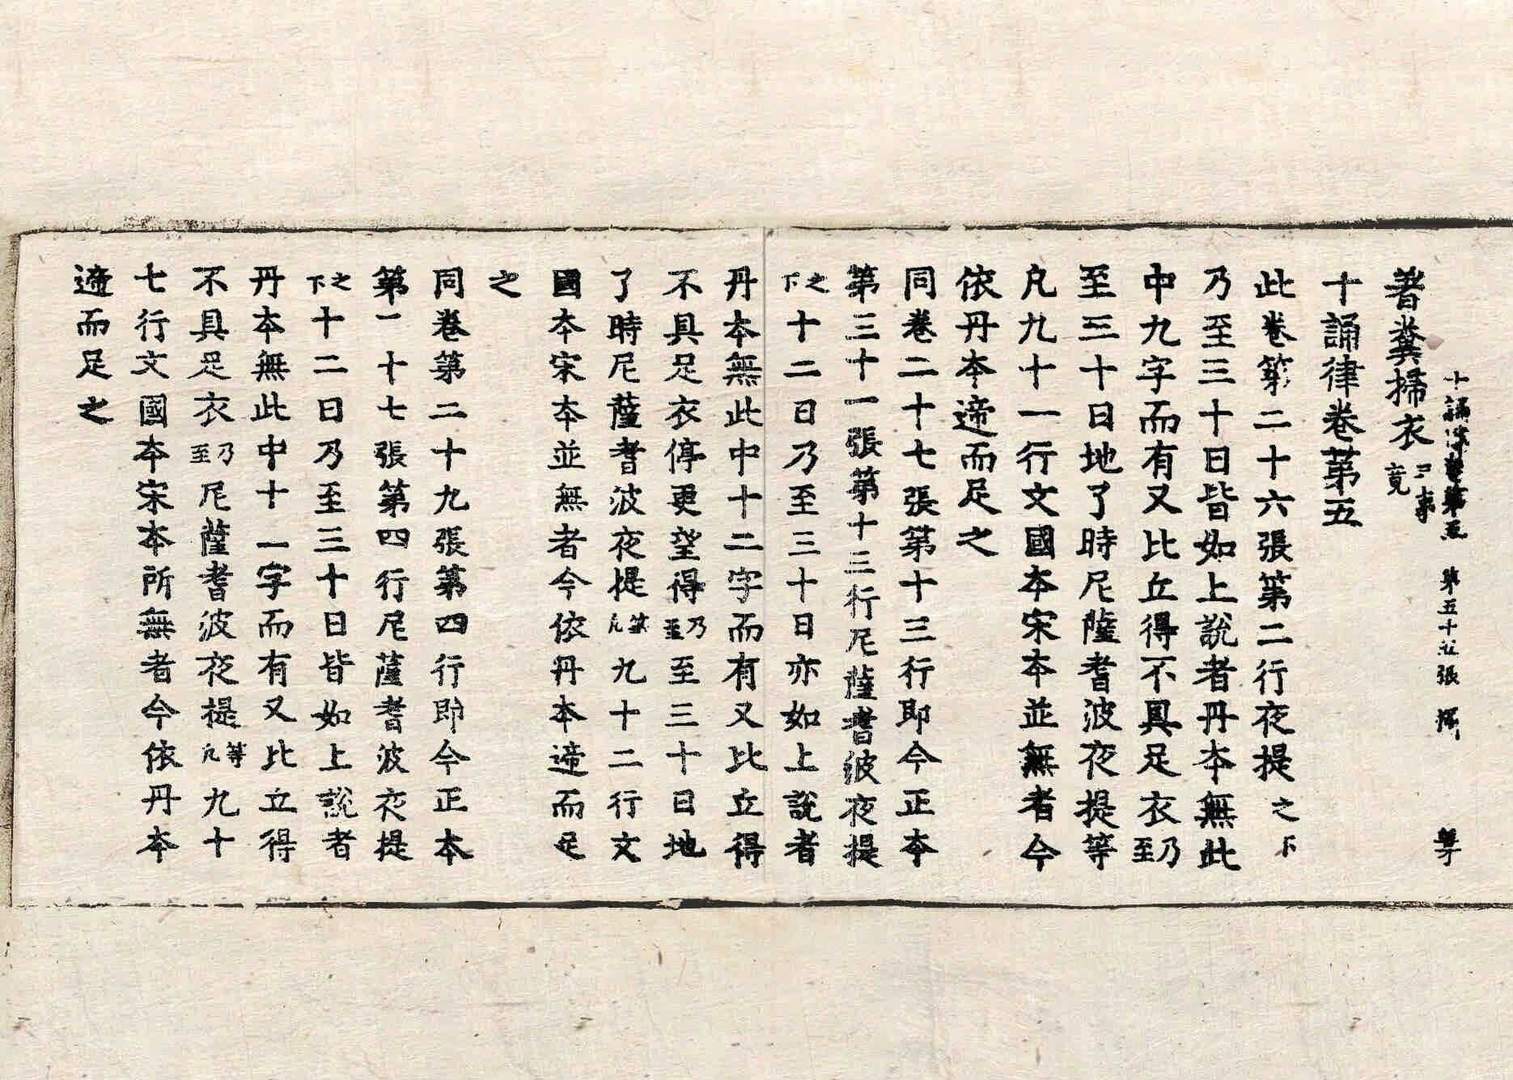 十誦律卷第五　第五十五張
著糞掃衣三事竟
十誦律卷第五
此卷第二十六張第二行夜提之下
乃至三十日皆如上說者丹本無此
中九字而有又比丘得不具足衣乃至
至三十日地了時尼薩耆波夜提等
凡九十一行文國本宋本並無者今
依丹本遆而足之
同卷二十七張第十三行即今正本
第三十一張第十三行尼薩耆波夜提
之下十二日乃至三十日亦如上說者
丹本無此中十二字而有又比丘得
不具足衣停更望得乃至至三十日地
了時尼薩耆波夜提等凡九十二行文
國本宋本並無者今依丹本遆而足
之
同卷第二十九張第四行即今正本
第一十七張第四行尼薩耆波夜提
之下十二日乃至三十日皆如上說者
丹本無此中十一字而有又比丘得
不具足衣乃至尼薩耆波夜提等凡九十
七行文國本宋本所無者今依丹本
遆而足之